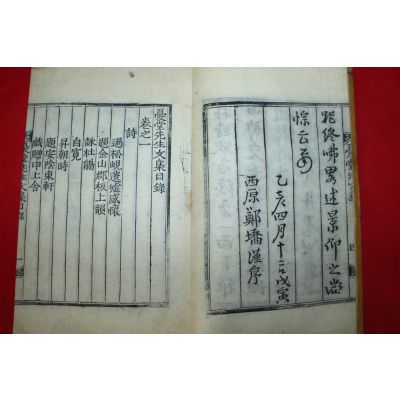 述景仰之
悰云爾
乙亥四月十二日戊寅
西原鄭墧謹序
憂堂先生文集目錄
卷之一
詩
過松峴遷塋感懷
題金山郡板上韻
詠杜鵑
自寬
昇朝時
題安陰東軒
戱贈申上舍